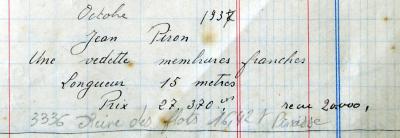 Octobre 1937
Jean Piron
Une vedette membrures franches
Longueur 15 metres
Prix 27,370 recu 20000,
3336 des flots